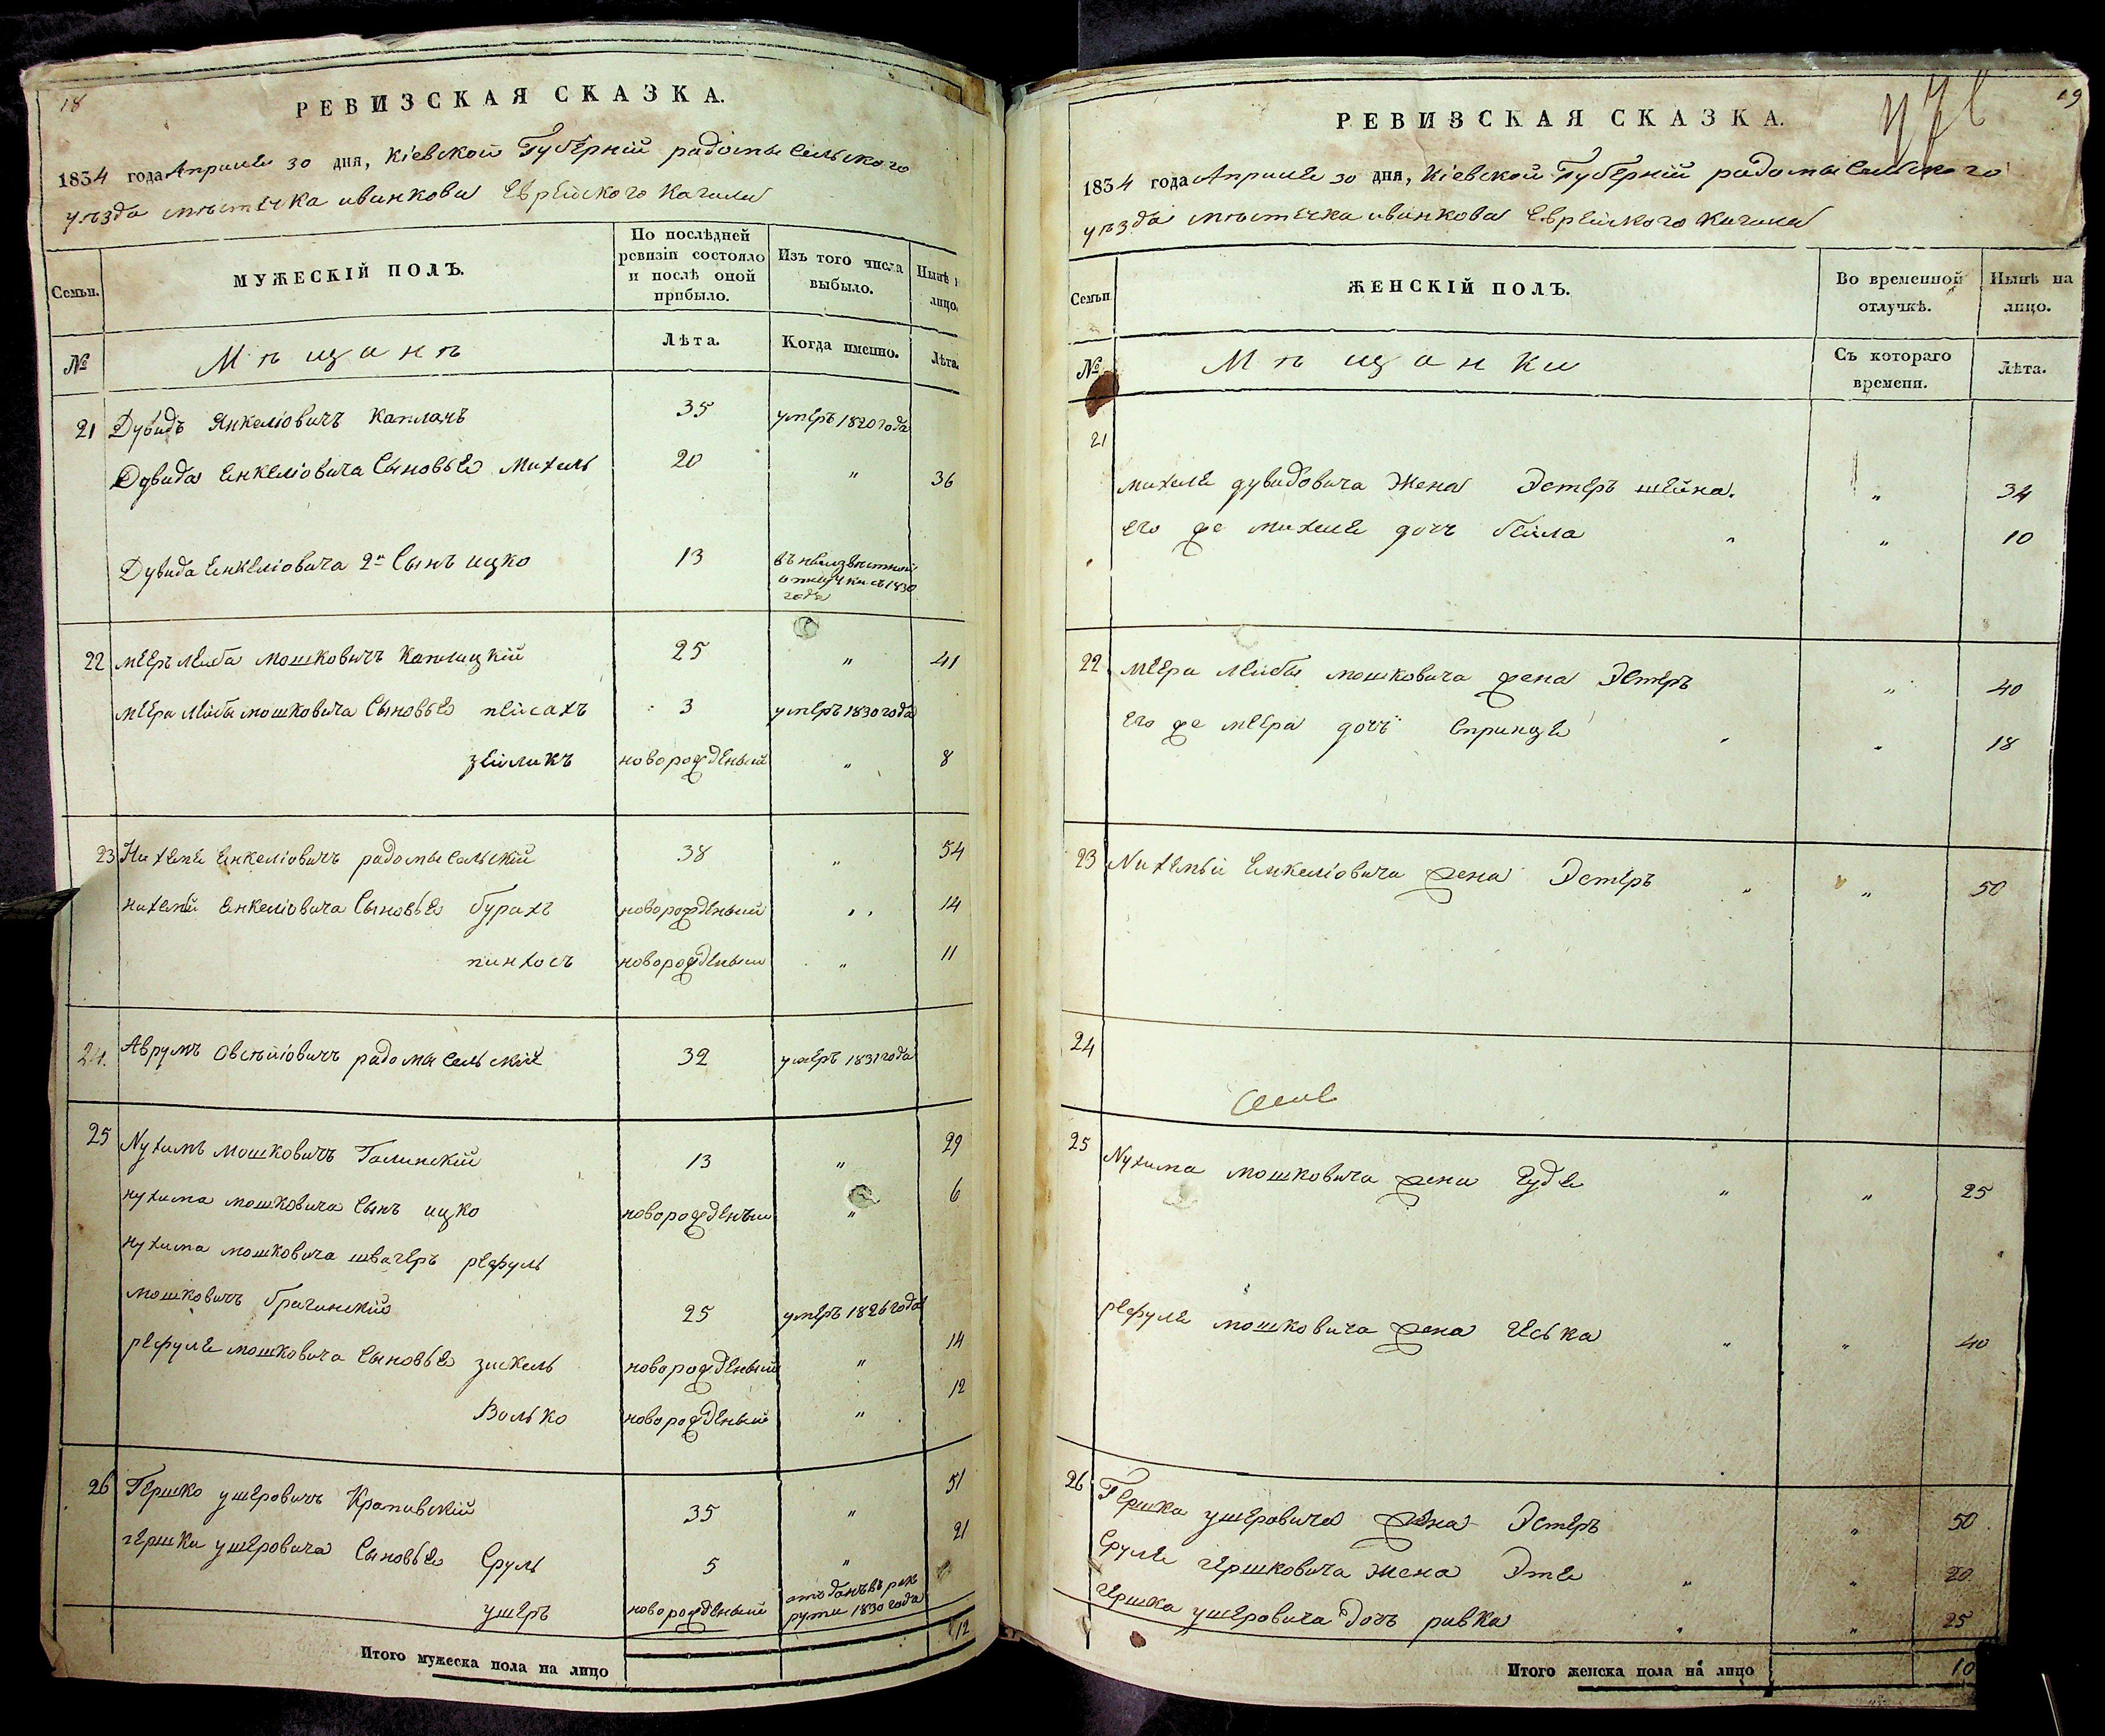 18
РЕВИЗСКАЯ СКАЗКА.
1834 года Апреля 30 дня, Кіевской Губерній радомысельского
уѣзда мѣстечка иванкова Еврейского Кагала
Семьи.
МУЖЕСКІЙ ПОЛЪ.
По послѣдней ревизіи состояло и послѣ оной прибыло.
Изъ того числа выбыло.
Нынѣ
лицо.
№
Мѣщанѣ
Лѣта.
Когда именно.
Лѣта.
21 Дувидъ Янкеліовичъ Капланъ 35 умеръ 1820 года
Дувида Енкеліовича Сыновье Михель 20 " 36
Дувида Енкеліовича 2й Сынъ ицко 13 въ неизвѣстной
отлучки съ 1830
года
22 мееръ Лейба мошковичъ Каплицкій 25 " 41
меера Лейбы мошковича Сыновье пейсахъ 3 умеръ 1830 года
зейликъ новорожденый " 8
23 Нихеме Енкеліовичъ радомысельскій 38 " 54
нихемй Енкеліовича Сыновье бурахъ новорожденый " 14
пинхосъ новорожденый " 11
24. Аврумъ Овсѣйіовичъ радомысельскій 32 умеръ 1831 года
25 Нухимъ мошковичъ Галинскій 13 " 29
нухима мошковича Сынъ ицко новорожденый " 6
нухима мошковича швагеръ рефуль
мошковичъ брагинскій 25 умеръ 1826 года
рефуле мошковича Сыновье зискель новорожденый " 14
Волько новорожденый " 12
26 Гершко ушеровичъ Крапивскій 35 " 51
гершки ушеровича Сыновье Сруль 5 " 21
ушеръ новорожденый отъданъ въ рек
рути 1830 года
Итого мужеска пола на лицо 12
19
РЕВИЗСКАЯ СКАЗКА.
1834 года Апреля 30 дня, Кіевской Губерній радомысельского
уѣзда мѣстечка иванкова Еврейского Кагала
Семьи
ЖЕНСКІЙ ПОЛЪ.
Во временной отлучкѣ.
Нынѣ на лицо.
№
Мѣщанки
Съ котораго времени.
Лѣта.
21
михеле дувидовича Жена Эстеръ шейна. " 34
его же михеле дочъ бейла " 10
22 меера Лейбы мошковича жена Эстеръ " 40
его же меера дочъ Спринце " 18
23 Нихемій Енкеліовича жена Эстеръ " 50
24
25 Нухима мошковича жена Гуде " 25
рефуле мошковича жена Неська " 40
26 Гершка ушеровича жена Эстеръ " 50
Сруле гершковича Жена Эте " 20
гершка ушеровича дочъ ривка " 25
Итого женска пола на лицо 10